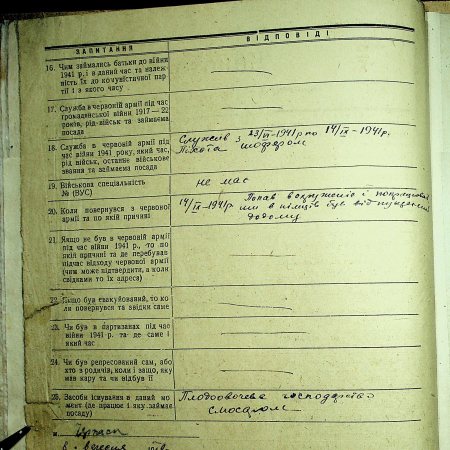 ЗАПИТАННЯ
ВІДПОВІДІ
16. Чим займались батьки до війни
1941 р. і в даний час та належ
ність їх до комуністичної пар
тії і з якого часу
17. Служба в червоній армії під час
громадянської війни 1917—22
років, рід військ та займаєма
посада
18. Служба в червоній армії під
час війни 1941 року, який час,
рід військ, останнє військове
звання та займаєма посада
Служив з 23/VI-1941 р по 14/IX-1941р.
Піхота шофером
19. Військова спеціальність
№ (ВУС)
не має
20. Коли повернувся з червоної
армії та по якій причині
14/IX-1941р Попав в
ми в німців був відпущений
додому
21. Якщо не був в червоній армії
під час війни 1941 р., -то по
якій причині та де перебував
підчас відходу червоної армії
(чим може підтвердити, а коли
свідками то їх адреса)
22. Якщо був евакуйований, то ко
ли повернувся та звідки саме
23. Чи був в партизанах під час
війни 1941 р. та де саме і
який час
24. Чи був репресований сам, або
хто з родичів, коли і защо, яку
мав кару та чи відбув її
25. Засоби існування в даний мо
мент (де працює і яку займає
посаду)
Плодоовочеве господарство
м.
вересня